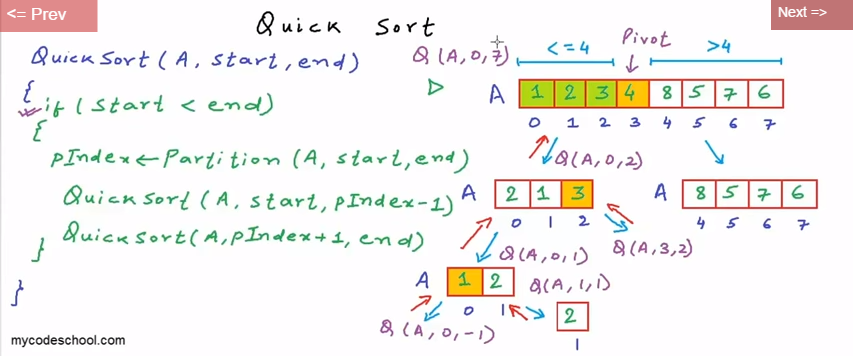 <= Prev
Next =>
Quick Sort
QuickSort(A, start, end)
{
if (start < end)
{
pIndex ← Partition (A, start, end)
QuickSort (A, start, pIndex-1)
QuickSort(A, pIndex+1, end)
}
}
Q(A,0,7)
<=4
Pivot
>4
A 1 2 3 4 8 5 7 6
0 1 2 3 4 5 6 7
Q(A,0,2)
A 2 1 3
0 1 2
A 8 5 7 6
4 5 6 7
Q(A,0,1)
Q(A,3,2)
A 1 2
0 1
Q(A,1,1)
Q(A,0,-1)
2
1
mycodeschool.com